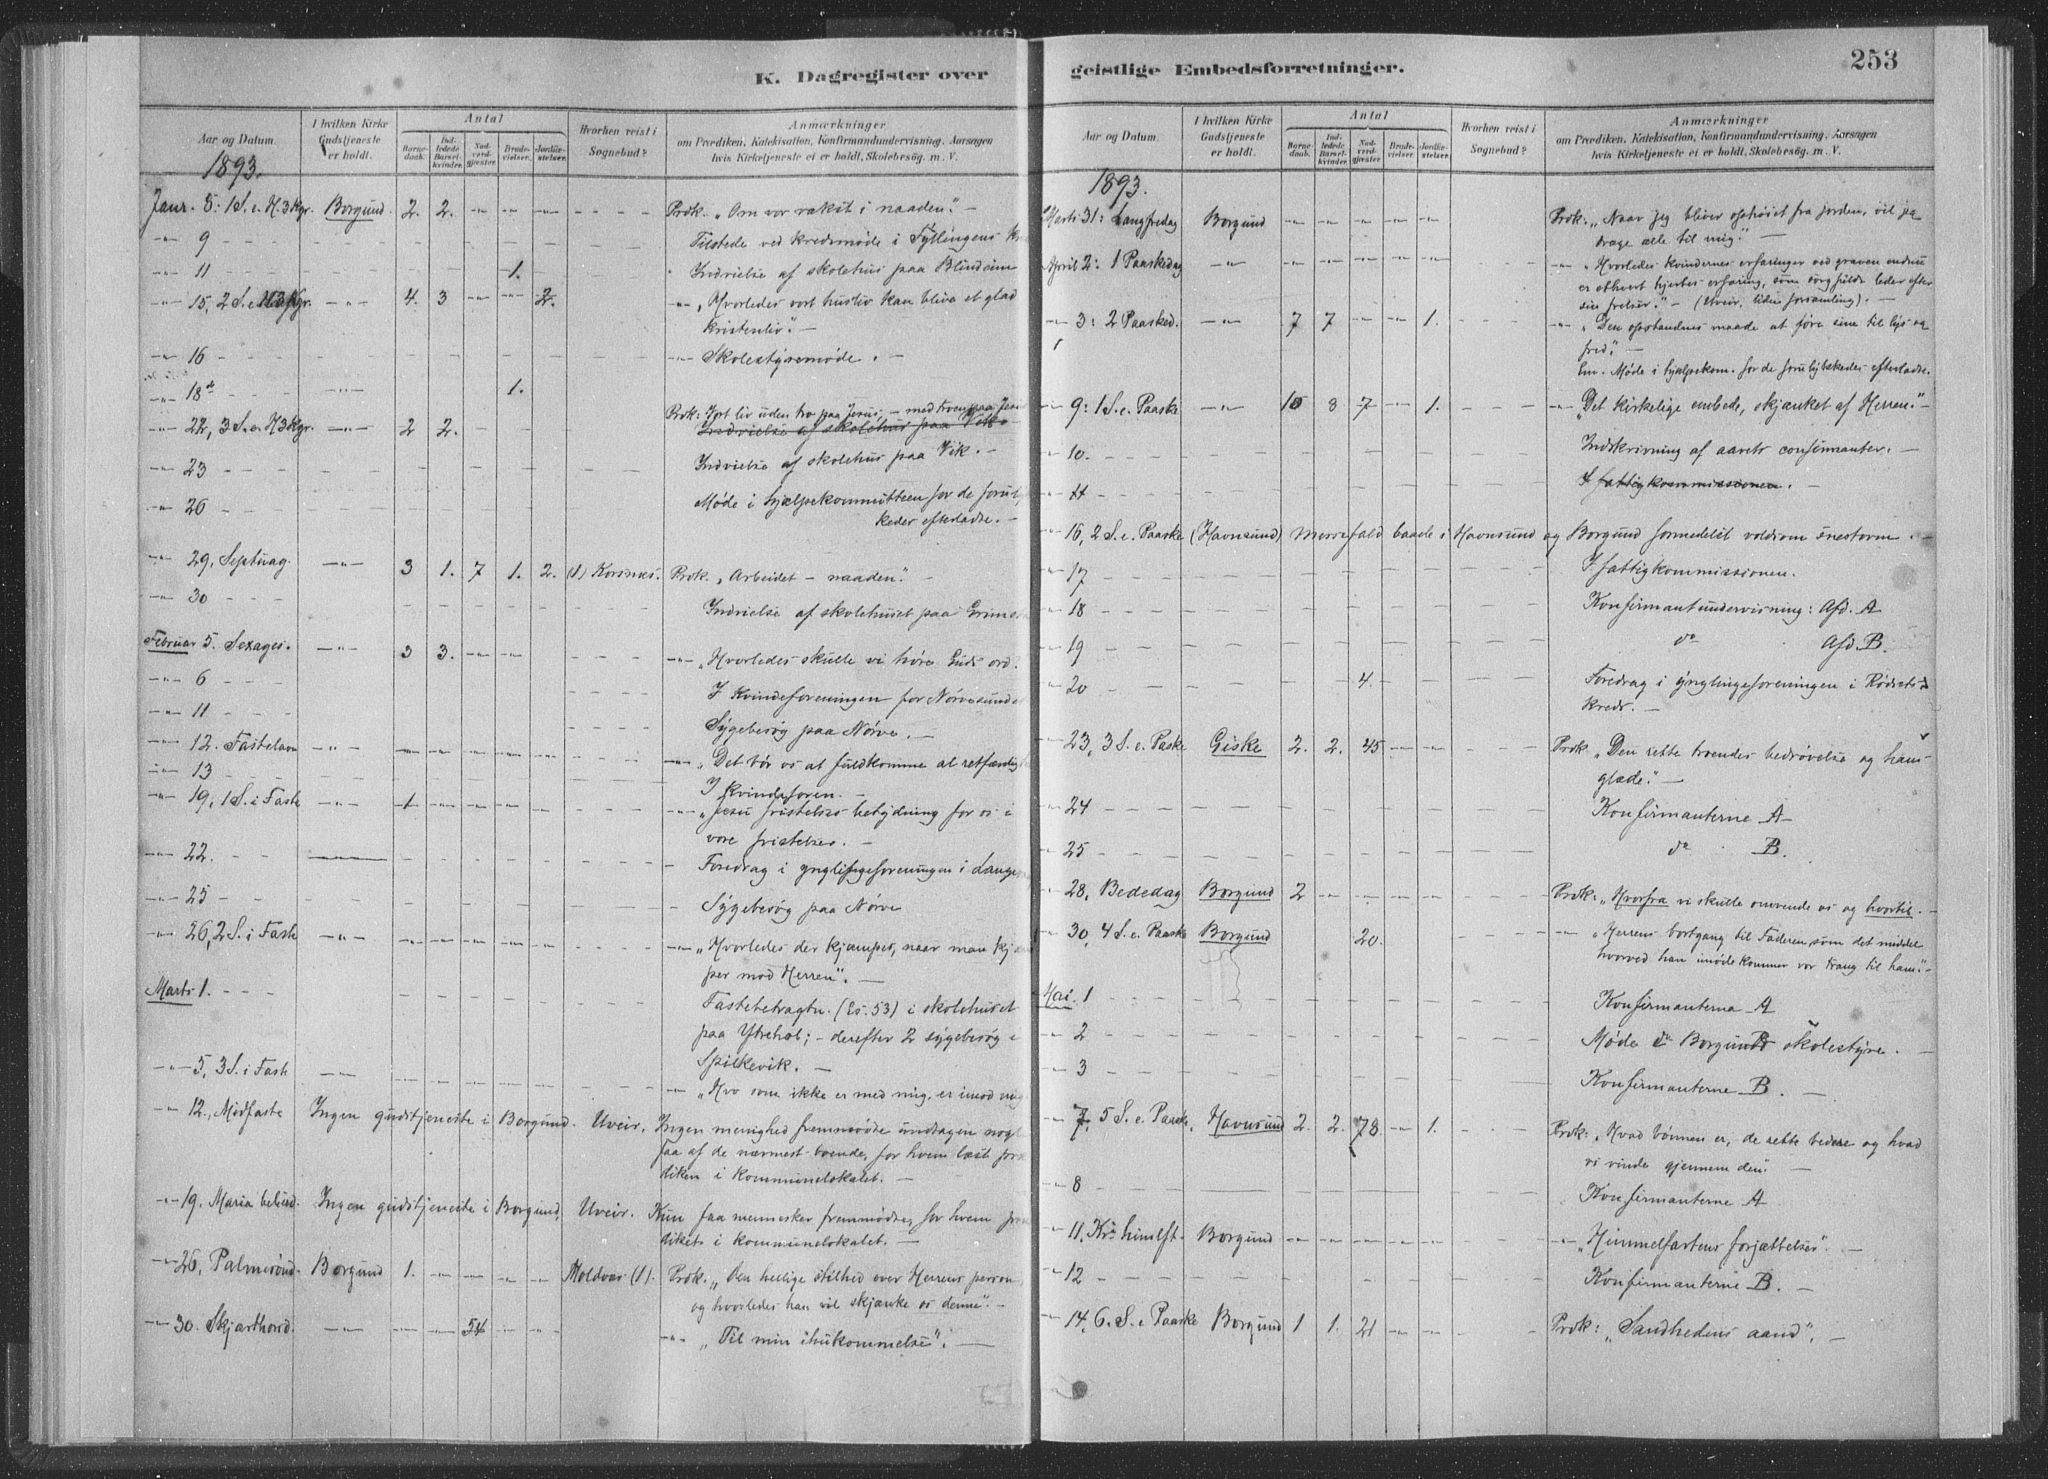 K. Dagregister over
Aar og Datum.
I hvilken Kirke Gudstjeneste er holdt.
Antal
Barne-daab.
Ind-ledede Barsel-kvinder.
Nad-verd-gjester
Brude-vielser.
Jordfæ-stelser.
Hvorhen reist i Sognebud?
Anmærkninger
om Prædiken, Katekisation, Konfirmandundervisning. Aarsagen
hvis Kirketjeneste ei er holdt, Skolebesøg. m. V.
1893.
Janr. 5: 1 S. e. H. 3 Kgr. Borgund. 2. 2. -"- -"- -"- Præk. „Om vor vækst i naaden". -
-"- 9 Tilstede ved kredsmøde i
-"- 11 1. Indvielse af skolehus paa Blindeim
-"- 15, 2 S. e. H3Kgr. -"- 4. 3 -"- -"- 2. -"- „Hvorledes vort husliv kan blive et glad
kristenliv". -
-"- 16 -"- Skolestyremøde. -
-"- 18de -"- 1.
-"- 22, 3 S. e. H3Kgr. -"- 2 2. Præk: Vort liv uden tro paa Jesus, - med troen paa Jesu
Indvielse af skolehus paa Vik
-"- 23 Indvielse af skolehus paa Vik. -
-"- 26 Møde i hjælpekommitteen for de forulyk
keder efterladte. -
-"- 29, Septuag. -"- 3 1. 7 1. 2. (1) Korsnes. Præk. „Arbeidet - naaden". -
-"- 30 Indvielse af skolehuset paa
Februar 5. Sexages. -"- 3 3. -"- -"- -"- „Hvorledes skulle vi høre Guds ord.
-"- 6 I Kvindeforeningen for Nørvesunde
-"- 11 Sygebesøg paa Nørve. -
-"- 12. Fastelavn -"- -"- -"- -"- -"- -"- -"- „Det bør os at fuldkomme al retfærdigh
-"- 13 I Kvindeforen. -
-"- 19, 1 S. i Faste -"- 1 -"- -"- -"- -"- -"- „Jesu fristelses betydning for os i
vore fristelser. -
-"- 22. Foredrag i ynglingeforeningen i
-"- 25 Sygebesøg paa Nørve
-"- 26, 2 S. i Faste -"- -"- -"- -"- -"- -"- -"- „Hvorledes der kjæmpes, naar man kjæm
per mod Herren". -
Marts 1. Fastebetragtn. (Es. 53) i skolehuset
paa Ytrehol; - derefter 2 sygebesøg i
Spilkevik. -
-"- 5, 3 S. i Fast -"- -"- „Hvo som ikke er med mig, er imod mig
-"- 12. Midfaste Ingen gudstjeneste i Borgund. Uveir. Ingen menighed fremmødte undtagen nogle
faa af de nærmest boende, for hvem læst præ
diken i kommunelokalet. -
-"- 19. Maria bebud. Ingen gudstjeneste i Borgund. Uveir. Kun faa mennesker fremmødte, for hvem præ
dikets i kommunelokalet. -
-"- 26, Palmesønd. Borgund 1. -"- -"- -"- -"- Moldvær (1). Præk: „Den hellige stilhed over Herrens person,
og hvorledes han vil skjænke os denne". -
-"- 30. Skjærthorsd. -"- -"- -"- 54 -"- „Til min ihukommelse". -
geistlige Embedsforretninger.
253
Aar og Datum.
I hvilken Kirke Gudstjeneste er holdt.
Antal
Barne-daab.
Ind-ledede Barsel-kvinder.
Nad-verd-gjester
Brude-vielser.
Jordfæ-stelser.
Hvorhen reist i Sognebud?
Anmærkninger
om Prædiken, Katekisation, Konfirmandundervisning. Aarsagen
hvis Kirketjeneste ei er holdt, Skolebesøg. m. V.
1893.
Marts 31: Langfredag Borgund -"- -"- -"- -"- -"- Præk: „Naar jeg bliver ophøiet fra jorden, vil jeg
drage alle til mig." -
April 2: 1 Paaskedag -"- -"- „Hvorledes kvindernes erfaringer ved graven endnu
er ethvert hjertes erfaring, som sørgfuldt leder efter
sin frelser." - (Uveir, liden forsamling). -
-"- 3: 2 Paasked. -"- 7 7 -"- -"- 1. -"- „Den opstandnes maade at føre sine til lys og
fred". -
Em. Møde i hjælpekom. for de forulykkedes efterladte.
-"- 9: 1 S. e. Paaske -"- 10 8 7 -"- 1. -"- „Det kirkelige embede, skjænket af Herren." -
-"- 10. Indskrivning af aarets confirmanter. -
-"- 11 I fattigkommissionen. -
-"- 16, 2 S. e. Paaske (Havnsund) Messefald baade i Havnsund og Borgund formedelst voldsom snestorm. -
-"- 17 I fattigkommissionen.
-"- 18 Konfirmantundervisning: Afd. A
-"- 19 do Afd. B.
-"- 20 4. Foredrag i ynglingeforeningen i Rødsets-
kreds. -
-"- 23, 3 S. e. Paske Giske 2. 2. 45 -"- -"- Præk. „Den rette troendes bedrøvelse og hans
glæde". -
-"- 24 Konfirmanterne A -
-"- 25 do B.
-"- 28, Bededag Borgund 2 -"- -"- -"- -"- Præk: „Hvorfra vi skulle omvende os og hvortil. -
-"- 30, 4 S. e. Paaske Borgund 20. -"- „Herrens bortgang til Faderen, som det middel
hvorved han imødekommer vor trang til ham". -
Mai. 1 Konfirmanterne A
-"- 2 Møde i Borgund skolestyre. -
-"- 3 Konfirmanterne B. -
-"- 7, 5 S. e. Paaske, Havnsund 2. 2. 78 -"- 1. Præk: „Hvad bønnen er, de rette bedere og hvad
vi vinde gjennem den". -
-"- 8 Konfirmanterne A
-"- 11, Kr. himlft. Borgund -"- -"- -"- -"- -"- -"- „Himmelfartens forjættelse". -
-"- 12 Konfirmanterne B. -
-"- 14, 6. S. e Paaske Borgund 1 1. 21 -"- -"- Præk: „Sandhedens aand". -